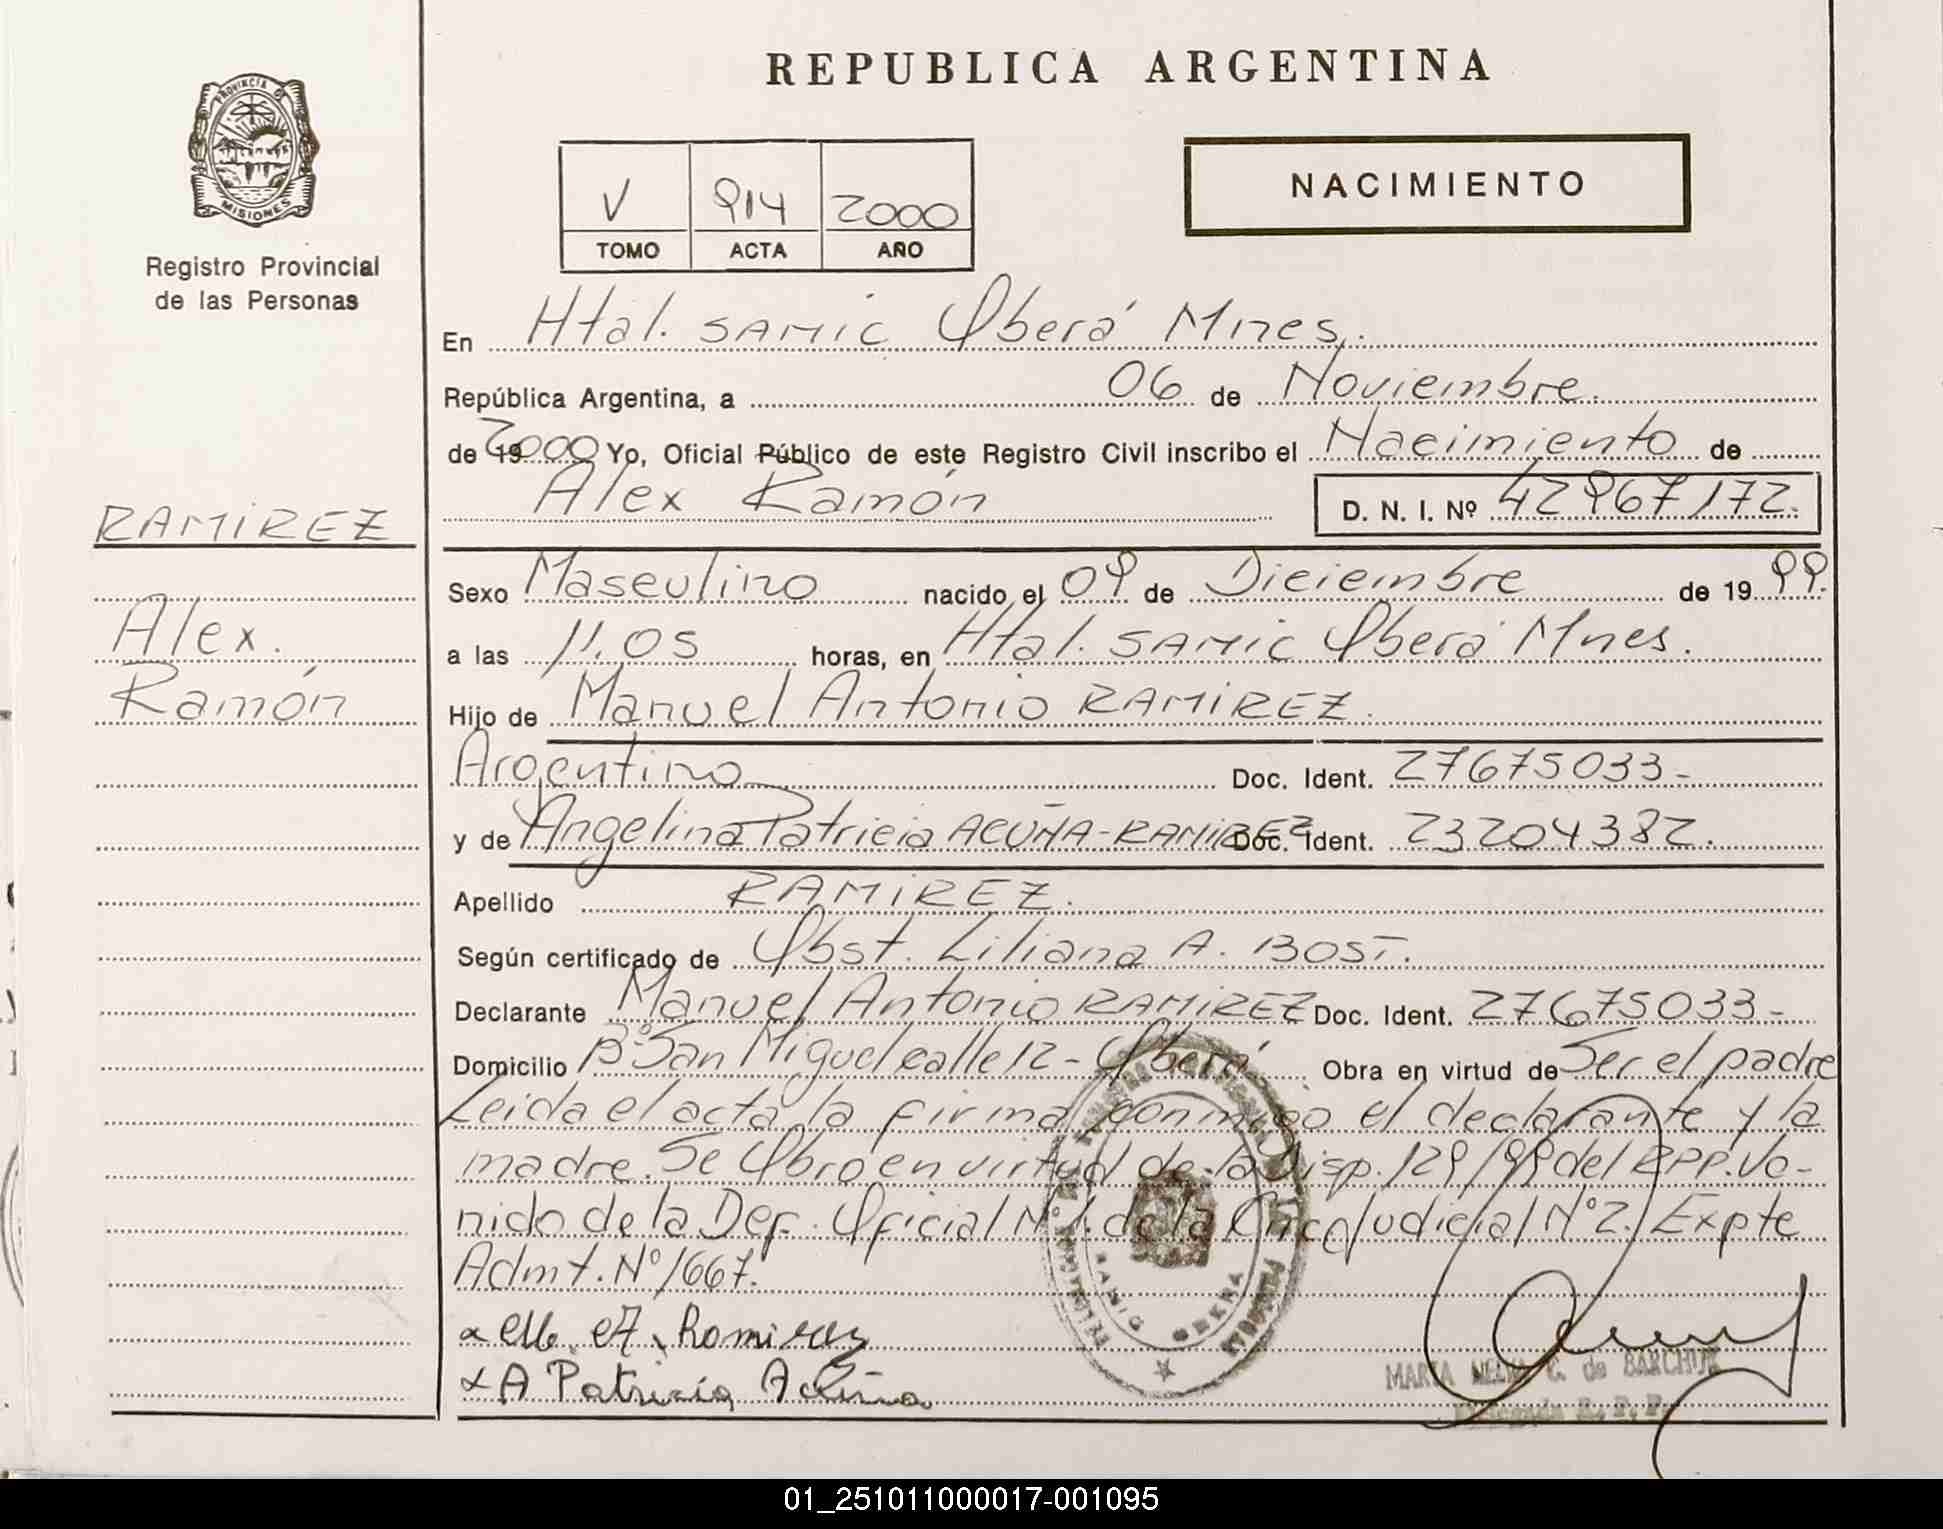 REPUBLICA ARGENTINA
PROVINCIA DE
MISIONES
Registro Provincial
de las Personas
V 914 2000
TOMO ACTA AÑO
NACIMIENTO
En Htal. SAMIC Oberá Mnes.
República Argentina, a 06 de Noviembre.
de 19 2000 Yo, Oficial Público de este Registro Civil inscribo el Nacimiento de
Alex Ramón D. N. I. Nº 42967172.
RAMIREZ
Alex.
Ramón
Sexo Masculino nacido el 09 de Diciembre de 19 99.
a las 11,05 horas, en Htal. SAMIC Oberá Mnes.
Hijo de Manuel Antonio RAMIREZ.
Argentino Doc. Ident. 27675033-
y de Angelina Patricia ACUÑA-RAMIREZ Doc. Ident. 23204382.
Apellido RAMIREZ.
Según certificado de Obst. Liliana A. BOST.
Declarante Manuel Antonio RAMIREZ Doc. Ident. 27675033-
Domicilio Bº San Miguel calle 12 - Oberá Obra en virtud de Ser el padre
Leida el acta, la firma conmigo el declarante y la
madre. Se Obro en virtud de la Disp. 129/99 del RPP. Ve-
nido de la Def. Oficial Nº 1. de la Circ. Judicial Nº 2. Expte
Admt. Nº 1667.
Ramirez
A Patricia Acuña
OBERA
MARIA C. de BARCHUK
R. P. P.
01_251011000017-001095